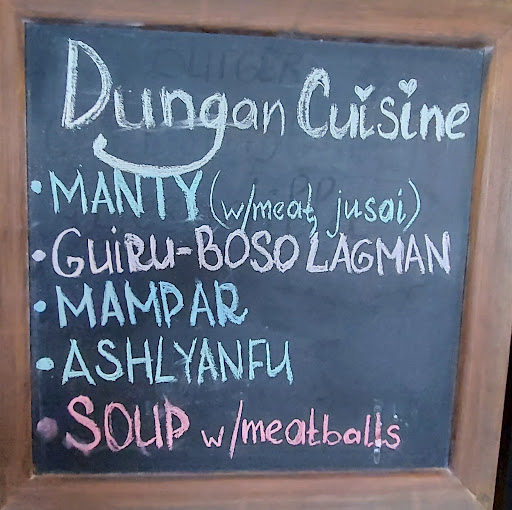 Dungan Cuisine
• MANTY (w/meat, jusai)
• GUiRU-BOSO LAGMAN
• MAMPAR
• ASHLYANFU
• SOUP w/meatballs